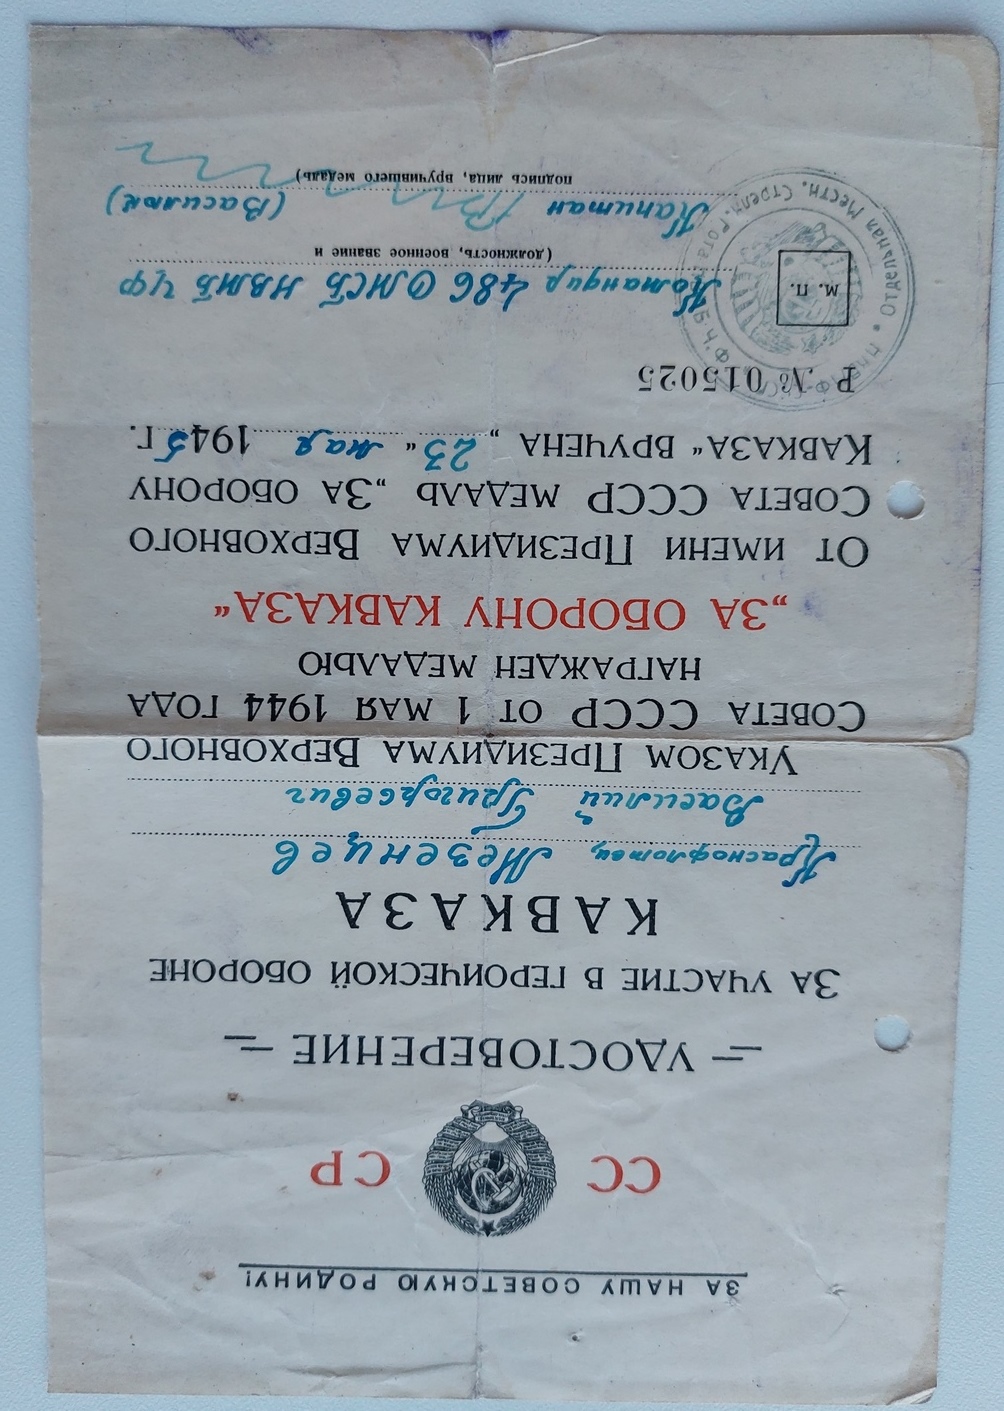 ЗА НАШУ СОВЕТСКУЮ РОДИНУ!
СС СР
УДОСТОВЕРЕНИЕ
ЗА УЧАСТИЕ В ГЕРОИЧЕСКОЙ ОБОРОНЕ
КАВКАЗА
Краснофлотец, Мезенцев
Василий Григорьевич
УКАЗОМ ПРЕЗИДИУМА ВЕРХОВНОГО
СОВЕТА СССР ОТ 1 МАЯ 1944 ГОДА
НАГРАЖДЕН МЕДАЛЬЮ
„ЗА ОБОРОНУ КАВКАЗА“
ОТ ИМЕНИ ПРЕЗИДИУМА ВЕРХОВНОГО
СОВЕТА СССР МЕДАЛЬ „ЗА ОБОРОНУ
КАВКАЗА“ ВРУЧЕНА „23“ мая 1945 г.
Р № 015025
Командир 486 ОМСБ НВМБ ЧФ
(должность, военное звание и
Капитан (Василюк)
подпись лица, вручившего медаль)
м. п.
Отдельная Местн. Стрелк. Рота